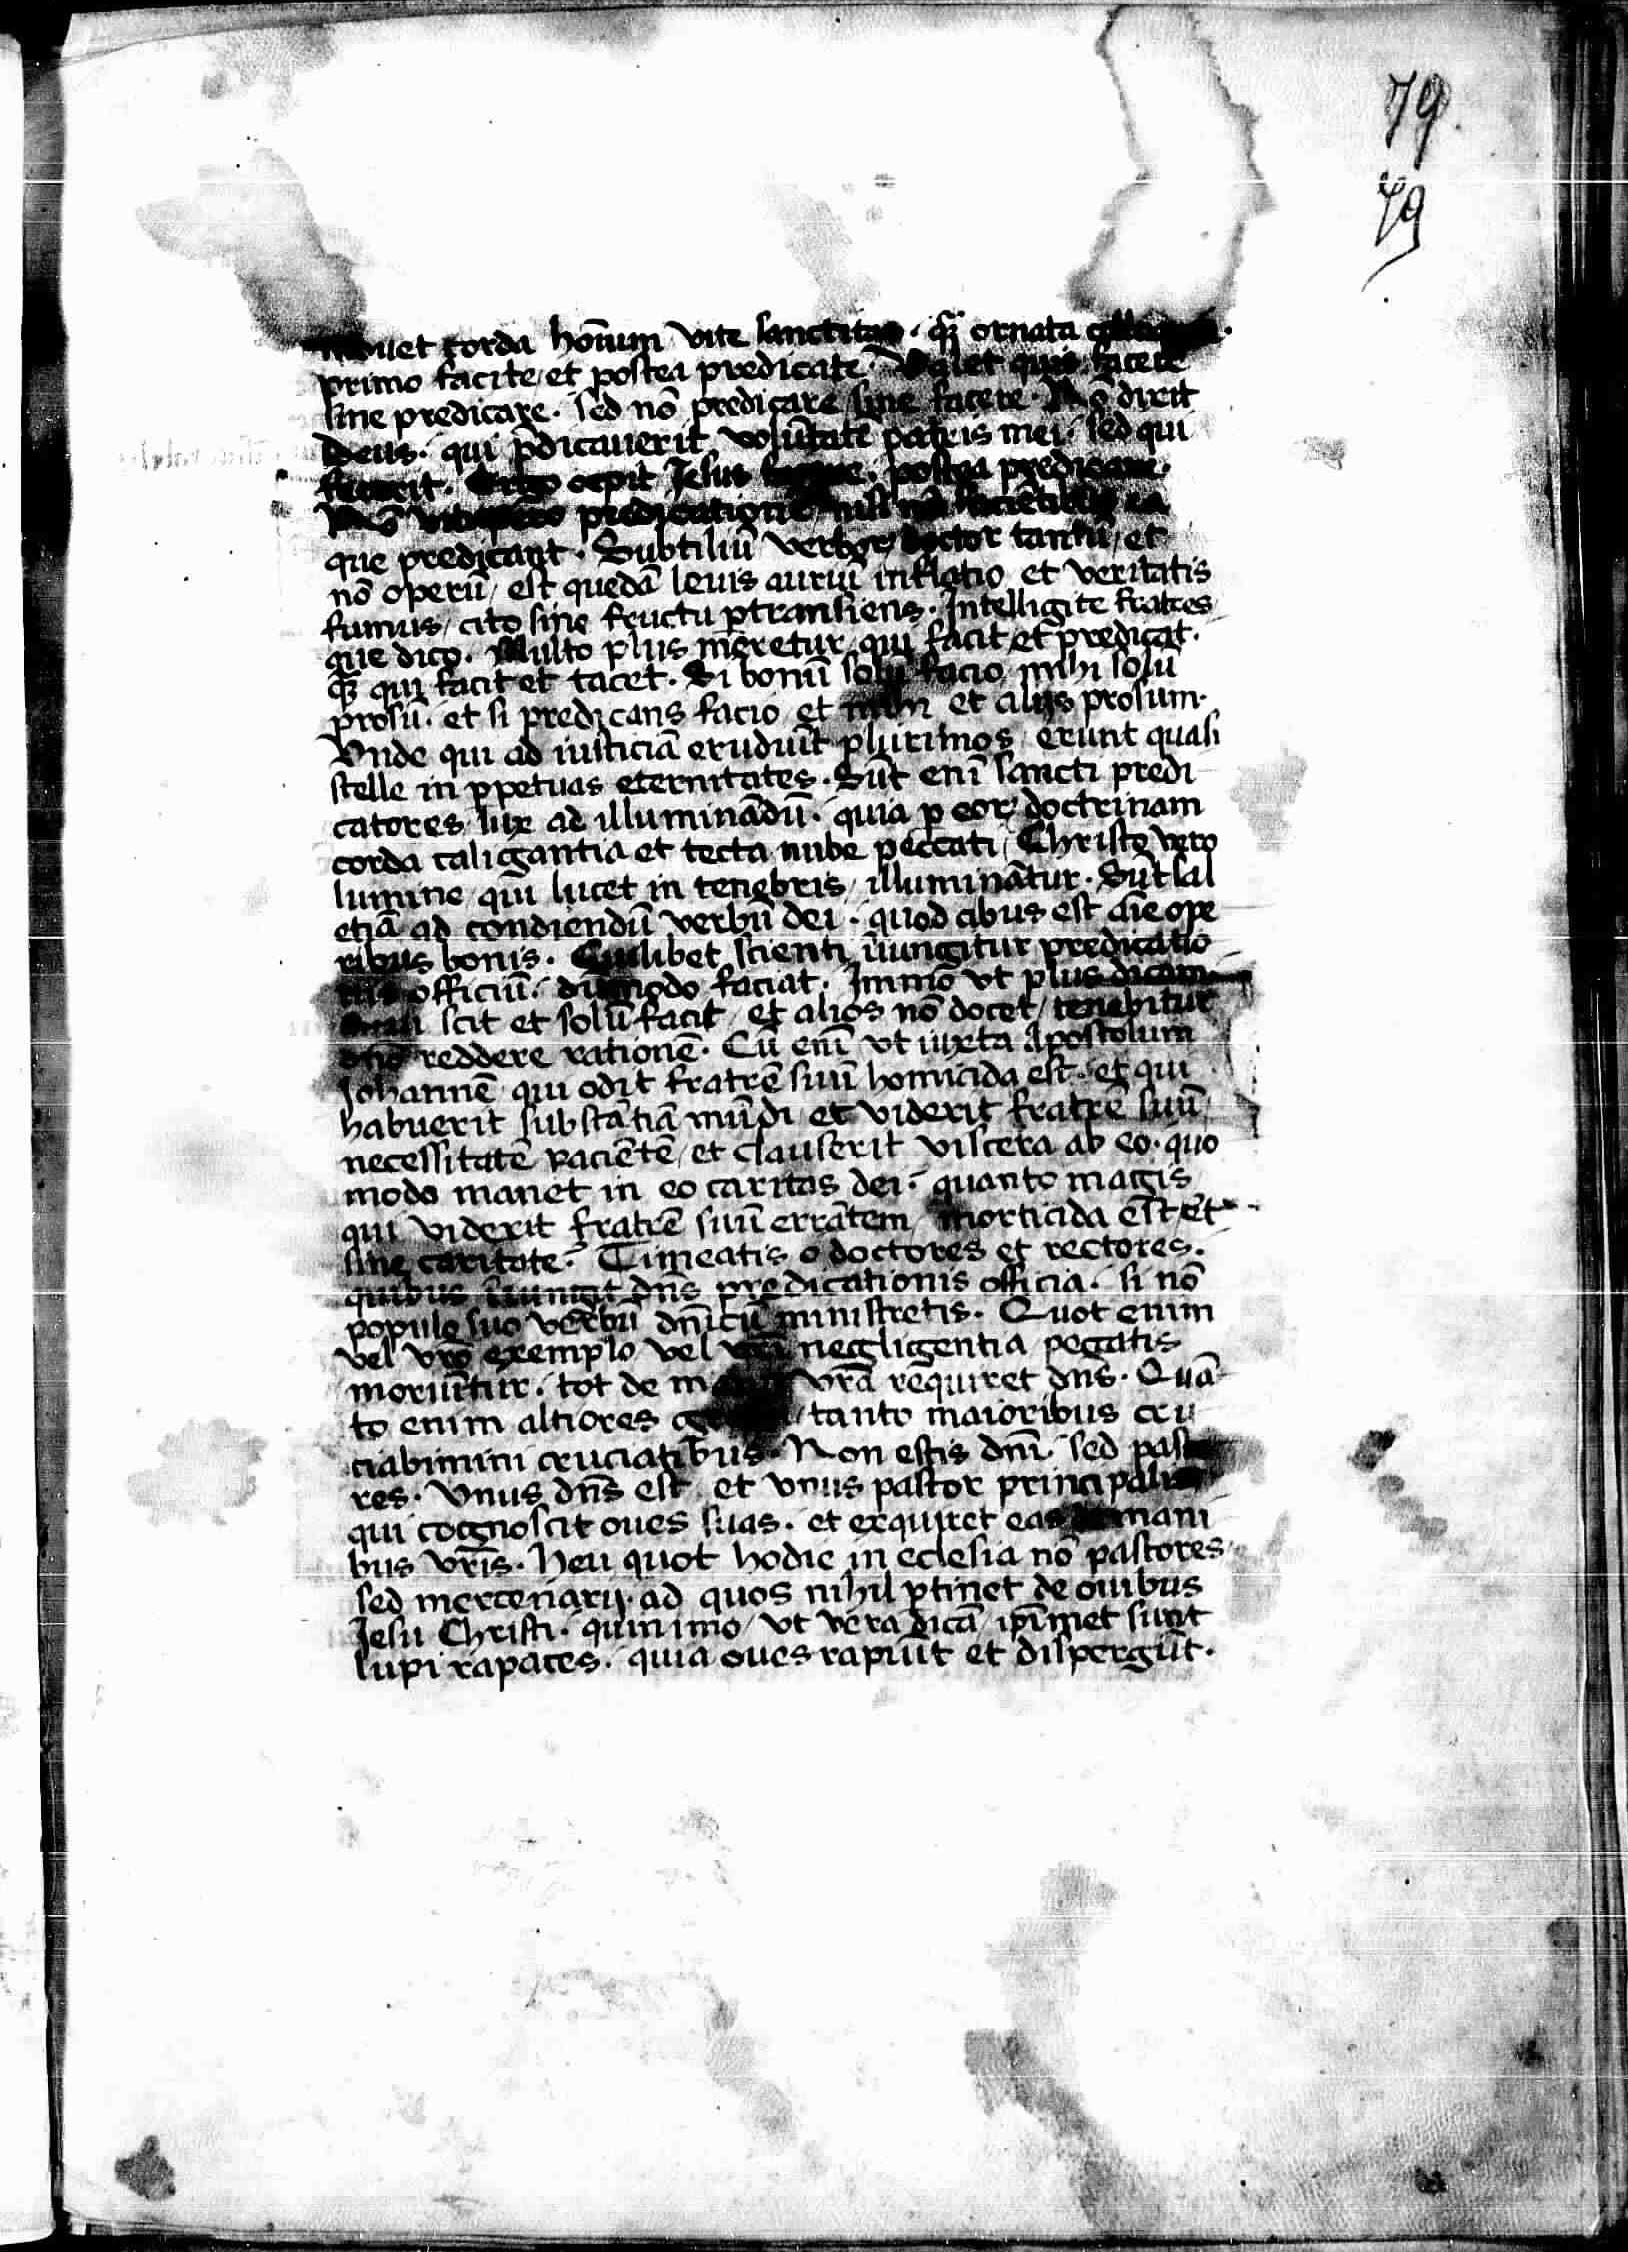 79.
79
mouet corda hoīum vite sanctitas. q̄ ornata
primo facite/ et postea predicate. Valet quis facere
sine predicare. sed nō predicare sine facere. Nō dixit
Deus. qui p̄dicauerit volūtatē patris mei. sed qui
fecerit. Ergo cepit Jesus facere. postea predicare.
predicationē nisi
que predicant. Subtiliū verboꝝ doctor tantū/ et
nō operū/ est quedā leuis auriū inflatio et veritatis
fumus/ cito sine fructu ꝑtransiens. Intelligite fratres
que dico. Multo plus meretur qui facit et predicat.
q̄ qui facit et tacet. Si bonū solū facio mihi solū
prosū. et si predicans facio et mihi et alijs prosum.
Vnde qui ad iusticiā erudiūt plurimos/ erunt quasi
stelle in ꝑpetuas eternitates. Sūt enī sancti predi
catores lux ad illuminādū. quia ꝑ eoꝝ doctrinam
corda caligantia et tecta nube peccati/ Christo vero
lumine/ qui lucet in tenebris/ illuminātur. Sūt sal
etiā ad condiendū verbū dei. quod cibus est aīe ope
ribus bonis. Cuilibet scienti iniungitur predicatio
nis officiū. dūmodo faciat. Immo vt plus dicam
scit et solū facit/ et alios nō docet/ tenebitur
dn̄o reddere rationē. Cū enī vt iuxta Apostolum
Johannē qui odit fratrē suū homicida est. et qui
habuerit substātiā mūdi et viderit fratrē suū
necessitatē paciētē/ et clauserit viscera ab eo. quo
modo manet in eo caritas dei? quanto magis
qui viderit fratrē suū errātem morticida est/ et
sine caritate? Timeatis o doctores et rectores.
quibus iniungit dn̄s predicationis officia. si nō
populo suo verbū dn̄icū ministretis. Quot enim
vel vr̄o exemplo/ vel vr̄a negligentia peccatis
moriūtur. tot de vr̄a requiret dn̄s. Quā
to enim altiores tanto maioribus cru
ciabimini cruciatibus. Non estis dn̄i. sed pasto
res. Vnus dn̄s est. et vnus pastor principalis
qui cognoscit oues suas. et exquiret eas de mani
bus vr̄is. Heu quot hodie in eclesia nō pastores
sed mercenarij. ad quos nihil ꝑtinet de ouibus
Jesu Christi. quinimo/ vt vera dicā/ ip̄imet sunt
lupi rapaces. quia oues rapiūt et dispergūt.